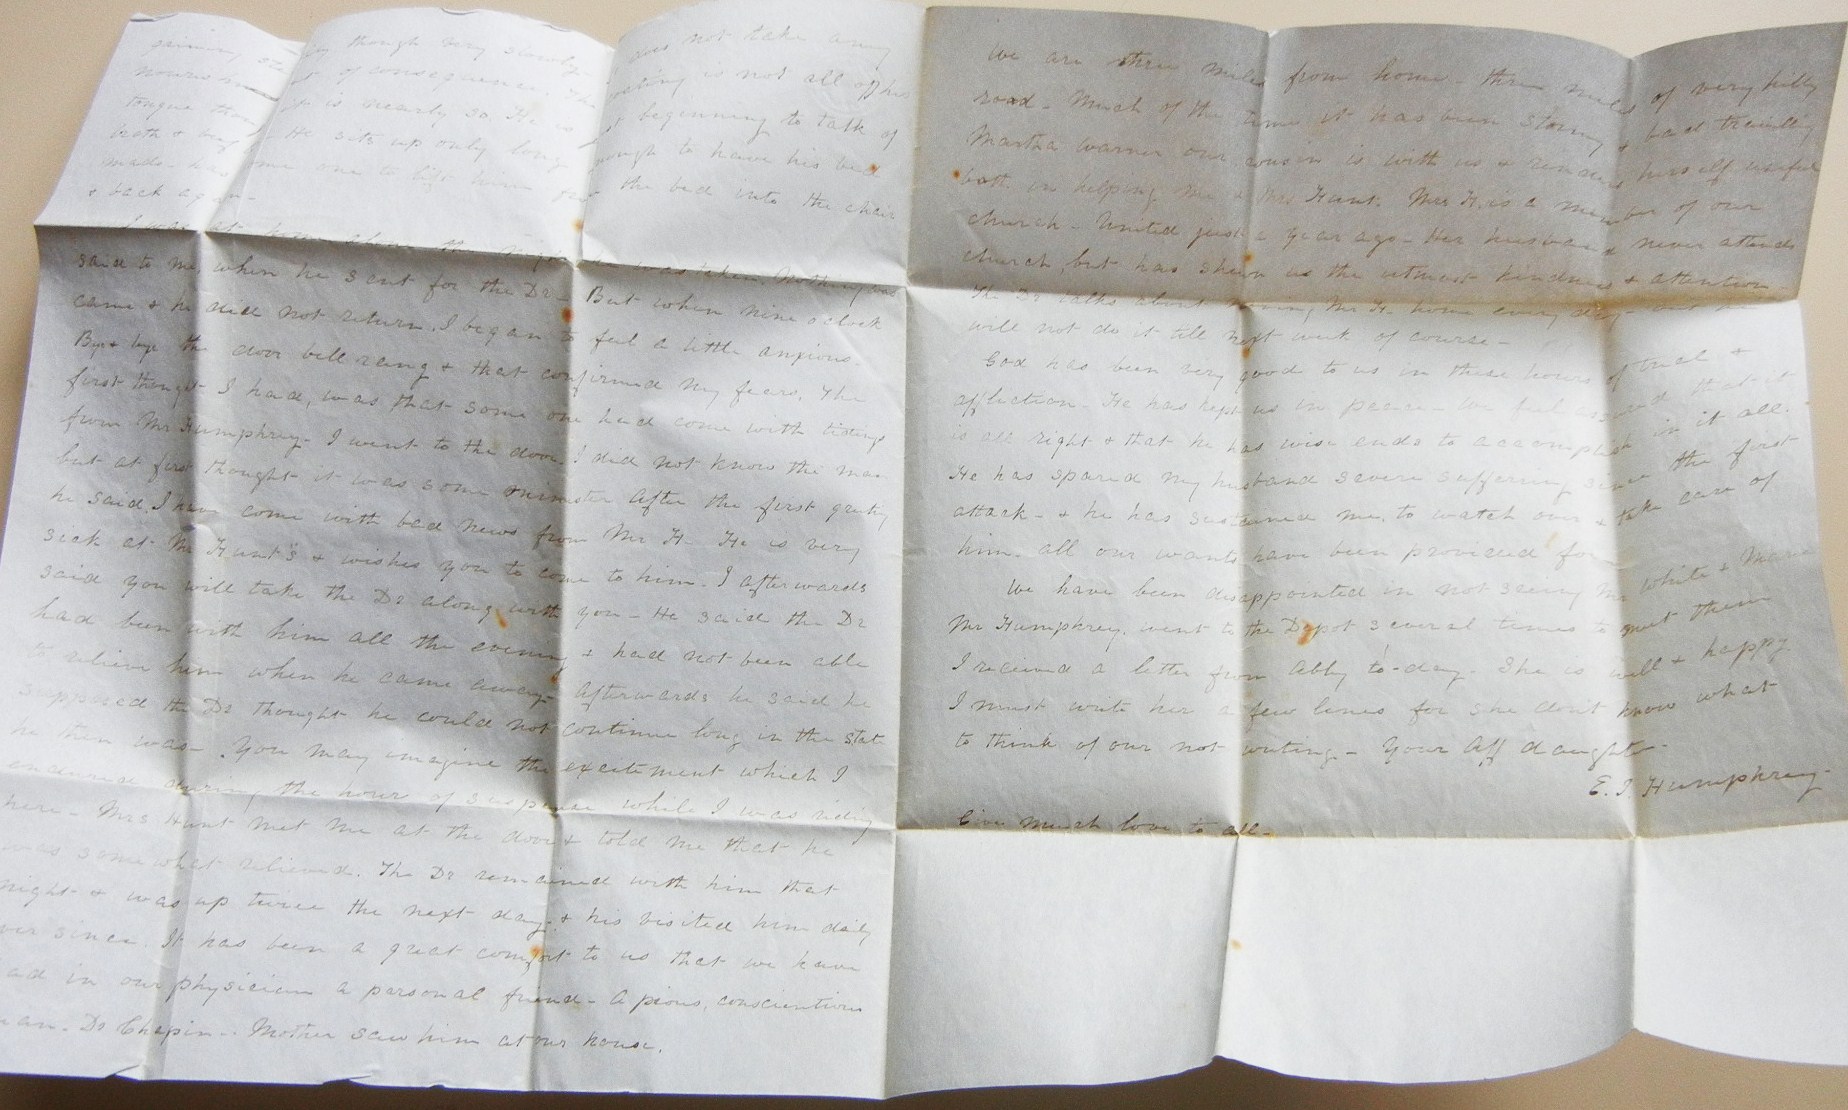 gaining though very slowly does not take any
of consequence. The coating is not all off his
tongue it is nearly so. He is beginning to talk of
He sits up only long enough to have his bed
made - one to lift him from the bed into the chair
& back again -
I was at home alone the night he was taken. Nothing was
said to me, when he sent for the Dr - But when nine o clock
came & he did not return. I began to feel a little anxious.
By & bye the door bell rang & that confirmed my fears. The
first thought I had, was that some one had come with tidings
from Mr Humphrey - I went to the door. I did not know the man
but at first thought it was some minister After the first greeting
he said I have come with bad news from Mr H. He is very
sick at Mr Hunt's & wishes you to come to him. I afterwards
said you will take the Dr along with you - He said the Dr
had been with him all the evening & had not been able
to relieve him when he came away - afterwards he said he
supposed the Dr thought he could not continue long in the state
he then was - You may imagine the excitement which I
endured during the hour of suspense while I was riding
here - Mrs Hunt met me at the door & told me that he
was somewhat relieved. The Dr remained with him that
night & was up twice the next day. & his visited him daily
ever since. It has been a great comfort to us that we have
had in our physician a personal friend - A pious, conscientious
man - Dr Chapin - Mother saw him at our house.
We are three miles from home - three miles of very hilly
road - Much of the time it has been stormy & bad travelling
Martha Warner our cousin is with us & renders herself useful
both in helping me & Mrs Hunt. Mrs H. is a member of our
church - United just a year ago - Her husband never attends
church, but has shewn us the utmost kindness & attention
The Dr talks about moving Mr H. home every day - but he
will not do it till next week of course -
God has been very good to us in these hours of trial &
affliction - He has kept us in peace - We feel assured that it
is all right & that he has wise ends to accomplish in it all.
He has spared my husband severe suffering since the first
attack - & he has sustained me, to watch over & take care of
him - all our wants have been provided for
We have been disappointed in not seeing Mr White & Maria
Mr Humphrey, went to the Depot several times to meet them
I received a letter from Abby to-day. She is well & happy
I must write her a few lines for she don't know what
to think of our not writing - Your Aff daughter -
E. J Humphrey -
Give much love to all -